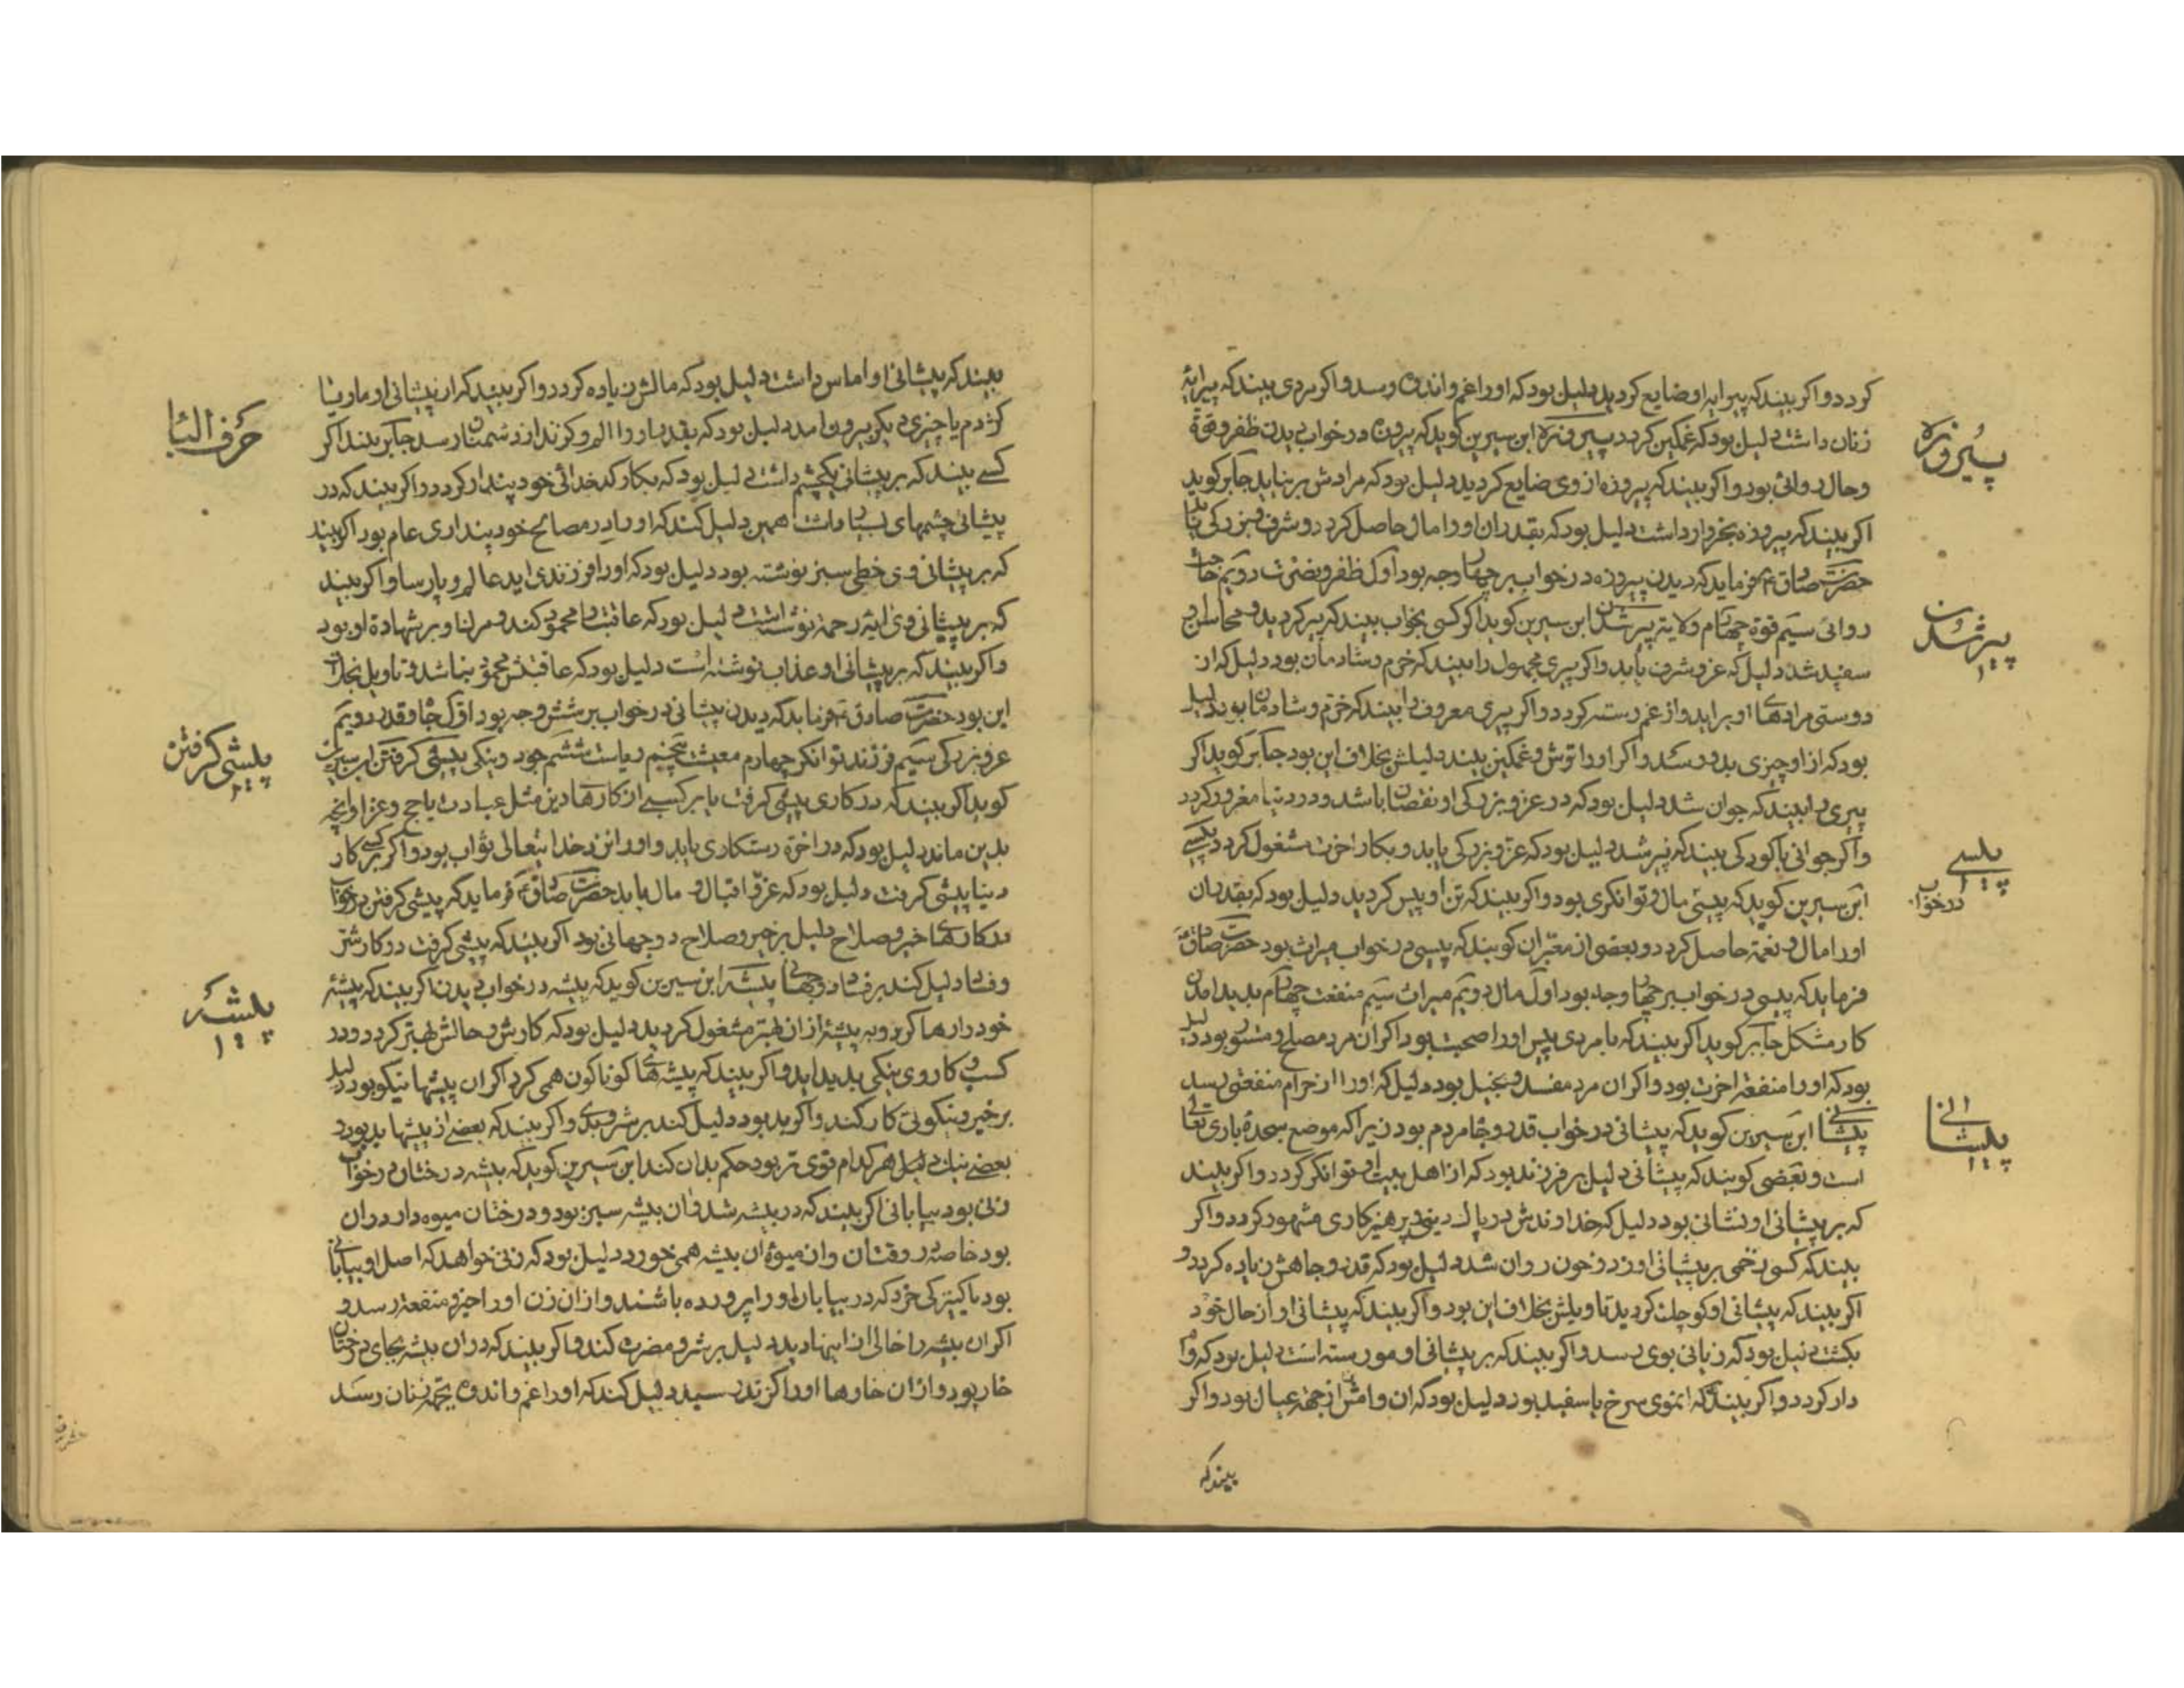 کردد واکر بیند که پیرایه او ضایع کردید دلیل بود که اورا غم واندوه رسد واکر مردی بیند که پیرایهٔ
زنان داشت دلیل بود که غمکین کردد پیروزه ابن سیرین کوید که پیروزه در خواب دیدن ظفر وقوة
وحال روائی بود واکر بیند که پیروزه از وی ضایع کردید دلیل بود که مرادش برنیاید جابر کوید
اکر بیند که پیروزه بخروار داشت دلیل بود که بقدر ان اورا مال حاصل کردد وشرف وبزرکی یابد
حضرت صادق ع فرماید که دیدن پیروزه در خواب بر چهار وجه بود اول ظفر ونصرت دویم حاجت
روائی سیم قوة چهارم ولایة پیر شدن ابن سیرین کوید اکر کسی بخواب بیند که پیر کردید ومحاسن او
سفید شد دلیل که عز وشرف یابد واکر پیری مجهول را بیند که خرم وشادمان بود دلیل که از
دوستی مرادهای او براید واز غم رسته کردد واکر پیری معروف را بیند که خرم وشادمان بود دلیل
بود که از او چیزی بدو رسد واکر اورا ترش وغمکین بیند دلیلش بخلاف این بود جابر کوید اکر
پیری را بیند که جوان شد دلیل بود که در عز وبزرکی او نقصان باشد ودر دنیا مغرور کردد
واکر جوانی یا کودکی بیند که پیر شد دلیل بود که عز وبزرکی یابد وبکار اخرت مشغول کردد پیسی
ابن سیرین کوید که پیسی مال وتوانکری بود واکر بیند که تن او پیس کردید دلیل بود که بقدر ان
اورا مال ونعمة حاصل کردد وبعضی از معبران کویند که پیسی در خواب میراث بود حضرت صادق ع
فرماید که پیسی در خواب بر چهار وجه بود اول مال دویم میراث سیم منفعت چهارم پدید امدن
کار مشکل جابر کوید اکر بیند که با مردی پیس اورا صحبت بود اکر ان مرد مصلح ومستور بود دلیل
بود که اورا منفعة اخرت بود واکر ان مرد مفسد وبخیل بود دلیل که اورا از حرام منفعتی رسد
پیشانی ابن سیرین کوید که پیشانی در خواب قدر وجاه مردم بود زیرا که موضع سجدهٔ باری تعالی
است وبعضی کویند که پیشانی دلیل بر فرزند بود که از اهل بیت او توانکر کردد واکر بیند
که بر پیشانی او نشانی بود دلیل که خداوندش در پاک دینی وپرهیزکاری مشهور کردد واکر
بیند که کسی زخمی بر پیشانی او زد وخون روان شد دلیل بود که قدر وجاهش زیاده کردد و
اکر بیند که پیشانی او کوچک کردید تاویلش بخلاف این بود واکر بیند که پیشانی او از حال خود
بکشت دلیل بود که زیانی بوی رسد واکر بیند که بر پیشانی او موی رسته است دلیل بود که وام
دار کردد واکر بیند که انموی سرخ یا سفید بود دلیل بود که ان وامش از جهة عیال بود واکر
بیند که
پیروزه
پیر شدن
پیسی
در خواب
پیشانی
بیند که پیشانی او اماس داشت دلیل بود که مالش زیاده کردد واکر بیند که از پیشانی او مار ویا
کژدم یا چیزی دیکر بیرون امد دلیل بود که بقدر او را الم وکزند از دشمنان رسد جابر کوید اکر
کسی بیند که بر پیشانی یکچشم داشت دلیل بود که بکار کدخدائی خود بیدار کردد واکر بیند که در
پیشانی چشمهای بسیار داشت همین دلیل کند که اورا در مصالح خود بیداری عام بود اکر بیند
که بر پیشانی وی خطی سبز نوشته بود دلیل بود که اورا فرزندی اید عالم وپارسا واکر بیند
که بر پیشانی وی ایة رحمة نوشته است دلیل بود که عاقبت او محمود کند ومرك او بر شهادة او بود
واکر بیند که بر پیشانی او عذاب نوشته است دلیل بود که عاقبتش محمود نباشد وتاویل بخلاف
این بود حضرت صادق ع فرماید که دیدن پیشانی در خواب بر شش وجه بود اول جاه وقدر دویم
عز وبزرکی سیم فرزند توانکر چهارم معیشت پنجم ریاست ششم جود ونیکی پیشی کرفتن ابن سیرین
کوید اکر بیند که در کاری پیشی کرفت یا بر کسی از کارهای دین مثل عبادت یا حج وغزا وانچه
بدین ماند دلیل بود که در اخرة رستکاری یابد واورا نزد خدایتعالی ثواب بود واکر بر کسی کار
دنیا پیشی کرفت دلیل بود که عز واقبال ومال یابد حضرت صادق ع فرماید که پیشی کرفتن در خواب
در کارهای خیر وصلاح دلیل بر خیر وصلاح دوجهانی بود اکر بیند که پیشی کرفت در کار شر
وفساد دلیل کند بر فساد دوجهان پیشه ابن سیرین کوید که پیشه در خواب دیدن اکر بیند که پیشهٔ
خود رها کرد وبه پیشهٔ از ان بهتر مشغول کردید دلیل بود که کارش وحالش بهتر کردد ودر
کسب وکار وی نیکی پدید اید واکر بیند که پیشه های کوناکون همی کرد اکر ان پیشها نیکو بود دلیل
بر خیر ونیکوئی کار کند واکر بد بود دلیل کند بر شر وبدی واکر بیند که بعضی از پیشها بد بود
بعضی نیك دلیل هر کدام قوی تر بود حکم بدان کند ابن سیرین کوید که بیشه درختان در خواب
زنی بود بیابانی اکر بیند که در بیشه شد وان بیشه سبز بود ودرختان میوه دار در ان
بود خاصه در وقتان وان میوهٔ ان بیشه همی خورد دلیل بود که زنی خواهد که اصل او بیابانی
بود یا کنیزکی خرد که در بیابان اورا پرورده باشند واز ان زن اورا خیر ومنفعة رسد و
اکر ان بیشه را خالی از اینها دید دلیل بر شر ومضرت کند واکر بیند که در ان بیشه بجای درختان
خار بود واز ان خارها اورا کزند رسید دلیل کند که اورا غم واندوه بجهة زنان رسد
حرف البا
پیشی کرفتن
پیشه